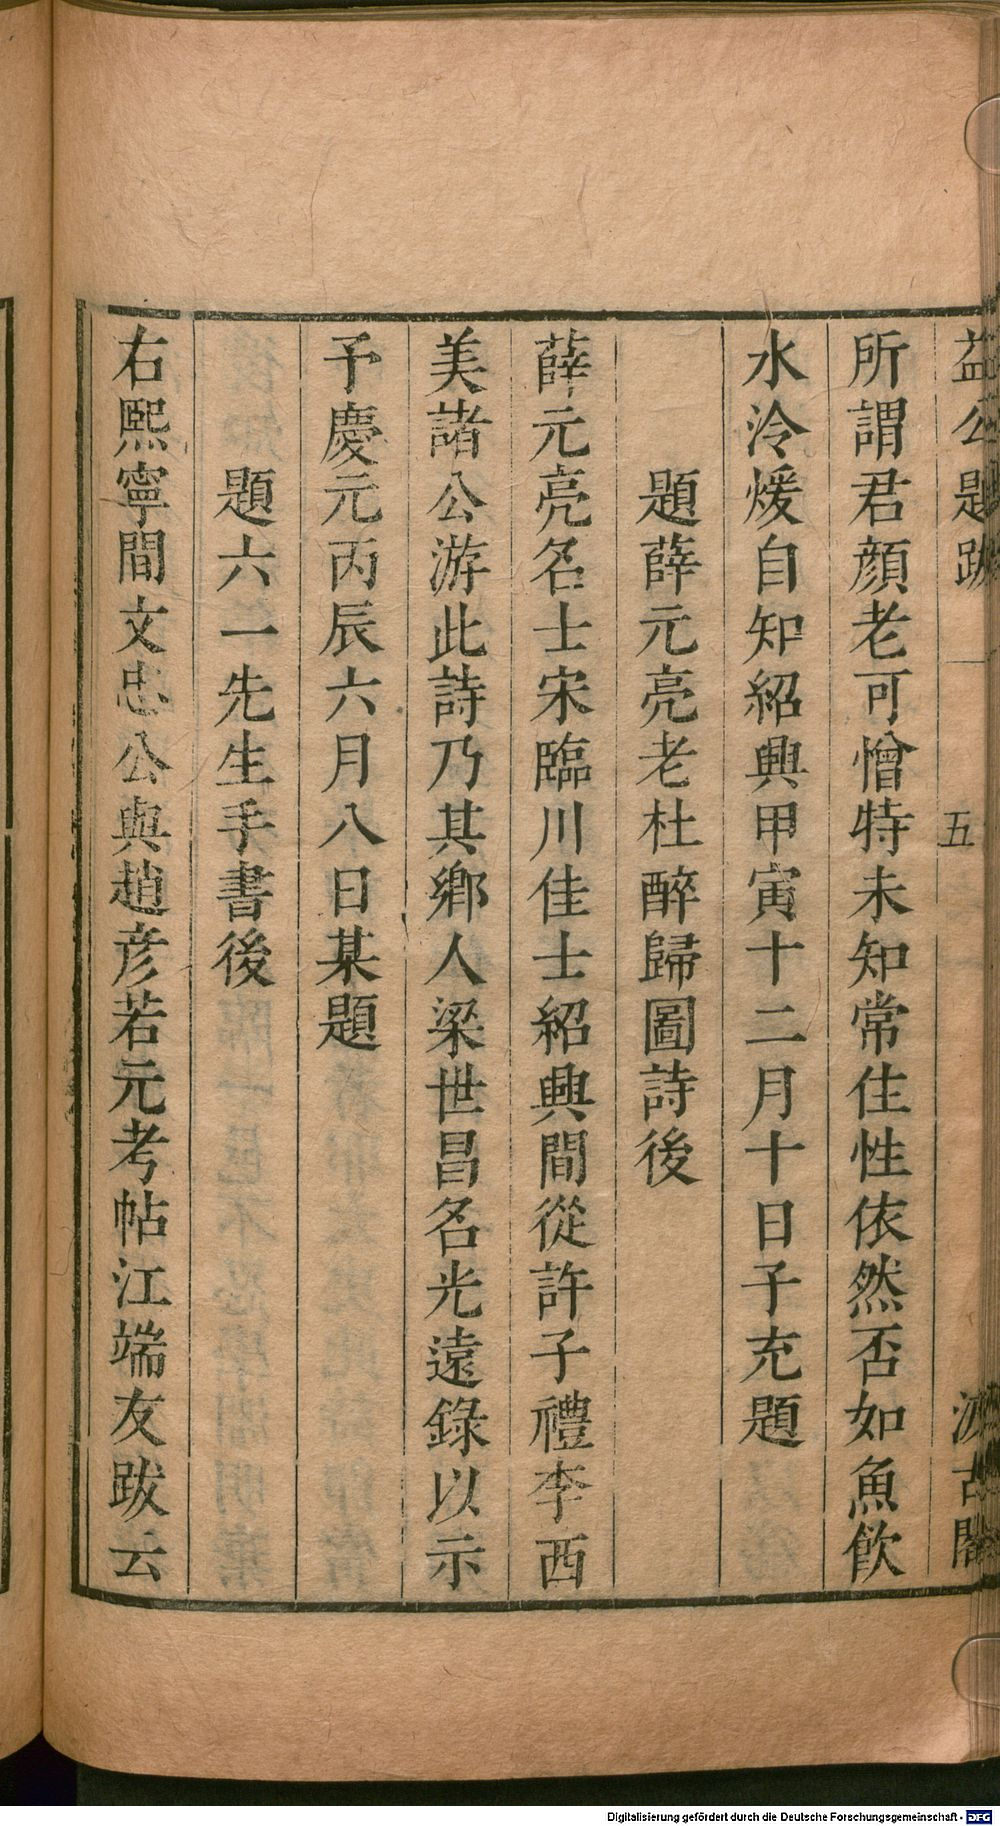 益公題跋 五 汲古閣
所謂君顏老可憎特未知常住性依然否如魚飲
水冷煖自知紹興甲寅十二月十日子充題
題薛元亮老杜醉歸圖詩後
薛元亮名士宋臨川佳士紹興間從許子禮李西
美諸公游此詩乃其鄉人梁世昌名光遠錄以示
予慶元丙辰六月八日某題
題六一先生手書後
右熙寧間文忠公與趙彥若元考帖江端友跋云
Digitalisierung gefördert durch die Deutsche Forschungsgemeinschaft - DFG